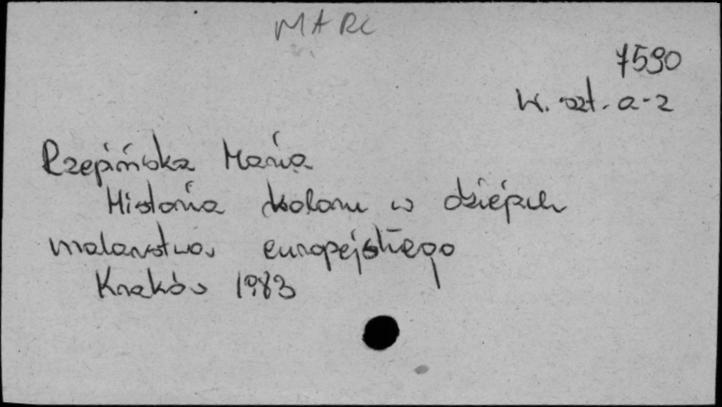 MARC
7590
W. szt. a-z
Rzepińska Maria
Historia koloru w dziejach
malarstwa europejskiego
Kraków 1983